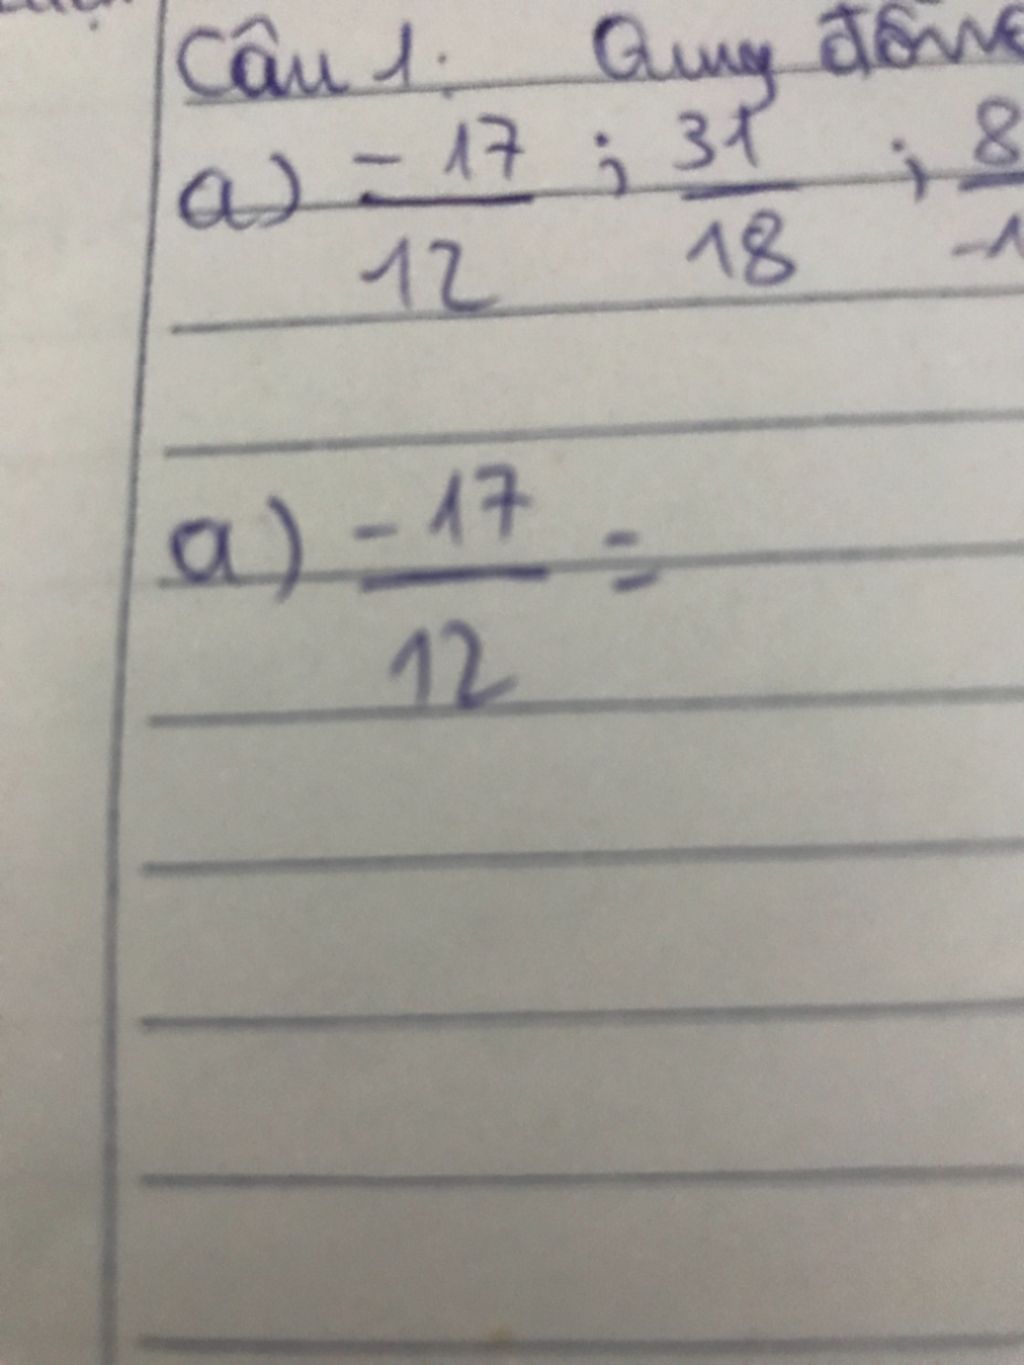 Câu 1. Quy đồng
a) -17/12 ; 31/18 ; 8/-1
a) -17/12 =